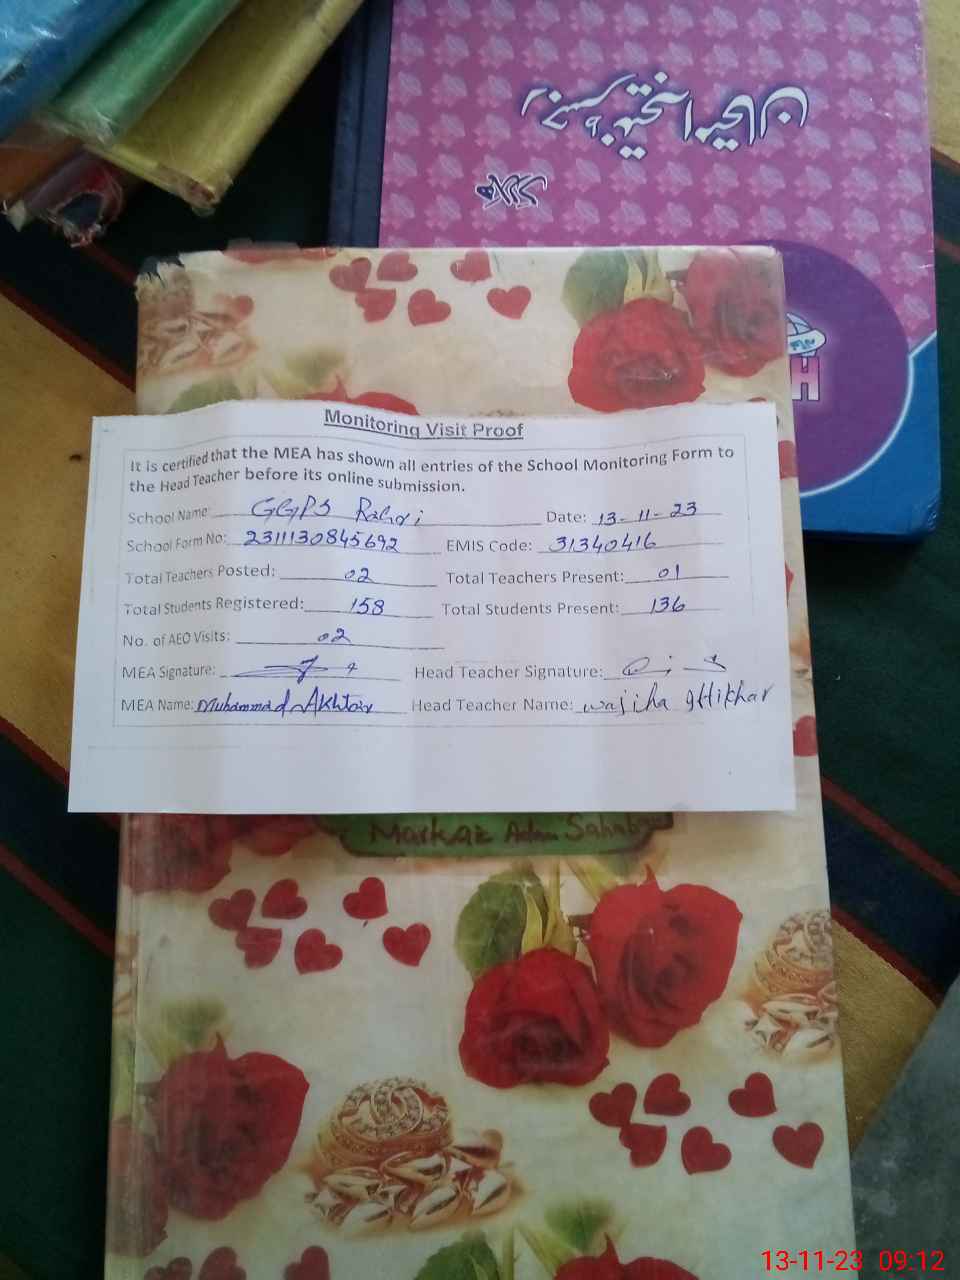 رجسٹر نتیجہ امتحان
H
Monitoring Visit Proof
It is certified that the MEA has shown all entries of the School Monitoring Form to
the Head Teacher before its online submission.
School Name: GGPS Date: 13-11-23
School Form No: 2311130845692 EMIS Code: 31340416
Total Teachers Posted: 02 Total Teachers Present: 01
Total Students Registered: 158 Total Students Present: 136
No. of AEO Visits: 02
MEA Signature: Head Teacher Signature:
MEA Name: Muhammad Akhtar Head Teacher Name: wajiha iftikhar
Markaz Adam Sahaba
13-11-23 09:12